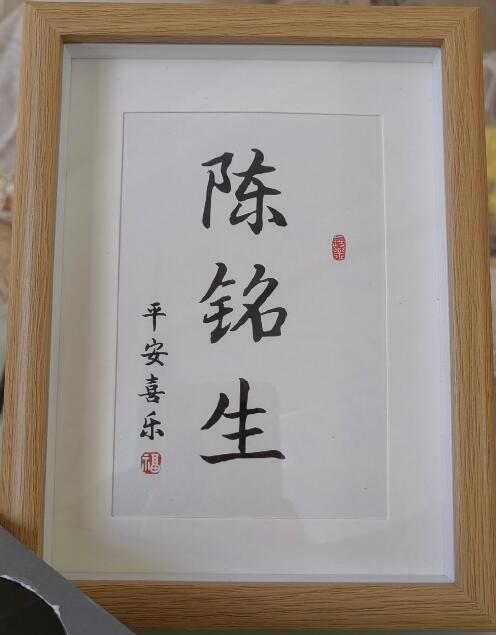 陈铭生
平安喜乐
福